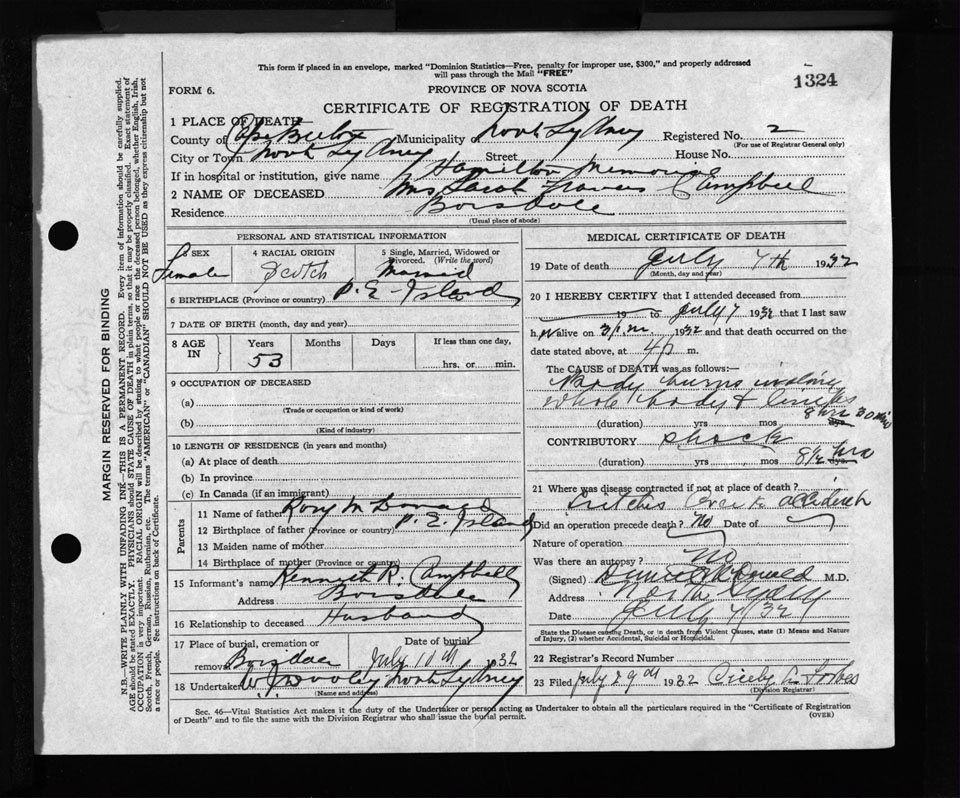 This form if placed in an envelope, marked "Dominion Statistics—Free, penalty for improper use, $300," and properly addressed
will pass through the Mail "FREE"
1324
FORM 6.
PROVINCE OF NOVA SCOTIA
CERTIFICATE OF REGISTRATION OF DEATH
1 PLACE OF DEATH
County of Cape Breton Municipality of North Sydney Registered No. 2
(For use of Registrar General only)
City or Town North Sydney Street House No.
If in hospital or institution, give name Hamilton Memorial
2 NAME OF DECEASED Mrs Sarah Frances Campbell
Residence Boisdale
(Usual place of abode)
PERSONAL AND STATISTICAL INFORMATION
3 SEX
Female
4 RACIAL ORIGIN
Scotch
5 Single, Married, Widowed or
Divorced. (Write the word)
Married
6 BIRTHPLACE (Province or country) P. E. Island
7 DATE OF BIRTH (month, day and year)
8 AGE
IN
Years
53
Months
Days
If less than one day,
hrs. or min.
9 OCCUPATION OF DECEASED
(a)
(Trade or occupation or kind of work)
(b)
(Kind of industry)
10 LENGTH OF RESIDENCE (in years and months)
(a) At place of death
(b) In province
(c) In Canada (if an immigrant)
Parents
11 Name of father Rory
12 Birthplace of father (Province or country) P. E. Island
13 Maiden name of mother
14 Birthplace of mother (Province or country)
15 Informant's name Kenneth R. Campbell
Address Boisdale
16 Relationship to deceased Husband
17 Place of burial, cremation or
removal Boisdale
Date of burial
July 10th 1932
18 Undertaker Dooley North Sydney
(Name and address)
MEDICAL CERTIFICATE OF DEATH
19 Date of death July 7th 1932
(Month, day and year)
20 I HEREBY CERTIFY that I attended deceased from
19 to July 7 1932 that I last saw
her alive on 1932 and that death occurred on
date stated above, at 4 p m.
The CAUSE of DEATH was as follows:—
Body burns involving
whole body & limbs
(duration) yrs mos dys. 8 hrs 30 min
CONTRIBUTORY shock
(duration) yrs mos dys. 8½ hrs
21 Where was disease contracted if not at place of death?
accident
Did an operation precede death? no Date of
Nature of operation
Was there an autopsy? no
(Signed) M.D.
Address North Sydney
Date July 7/32
State the Disease causing Death, or in death from Violent Causes, state (1) Means and Nature
of Injury, (2) whether Accidental, Suicidal or Homicidal.
22 Registrar's Record Number
23 Filed July 29th 1932 Cicely A. Forbes
(Division Registrar)
Sec. 46—Vital Statistics Act makes it the duty of the Undertaker or person acting as Undertaker to obtain all the particulars required in the "Certificate of Registration
of Death" and to file the same with the Division Registrar who shall issue the burial permit.
(OVER)
MARGIN RESERVED FOR BINDING
N.B.—WRITE PLAINLY WITH UNFADING INK—THIS IS A PERMANENT RECORD. Every item of information should be carefully supplied.
AGE should be stated EXACTLY. PHYSICIANS should STATE CAUSE OF DEATH in plain terms, so that it may be properly classified. Exact statement of
OCCUPATION is very important. RACIAL ORIGIN will be described by stating to what people or race the deceased person belonged, whether English, Irish,
Scotch, French, German, Russian, Ruthenian, etc. The terms "AMERICAN" or "CANADIAN" SHOULD NOT BE USED as they express citizenship but not
a race or people. See instructions on back of Certificate.